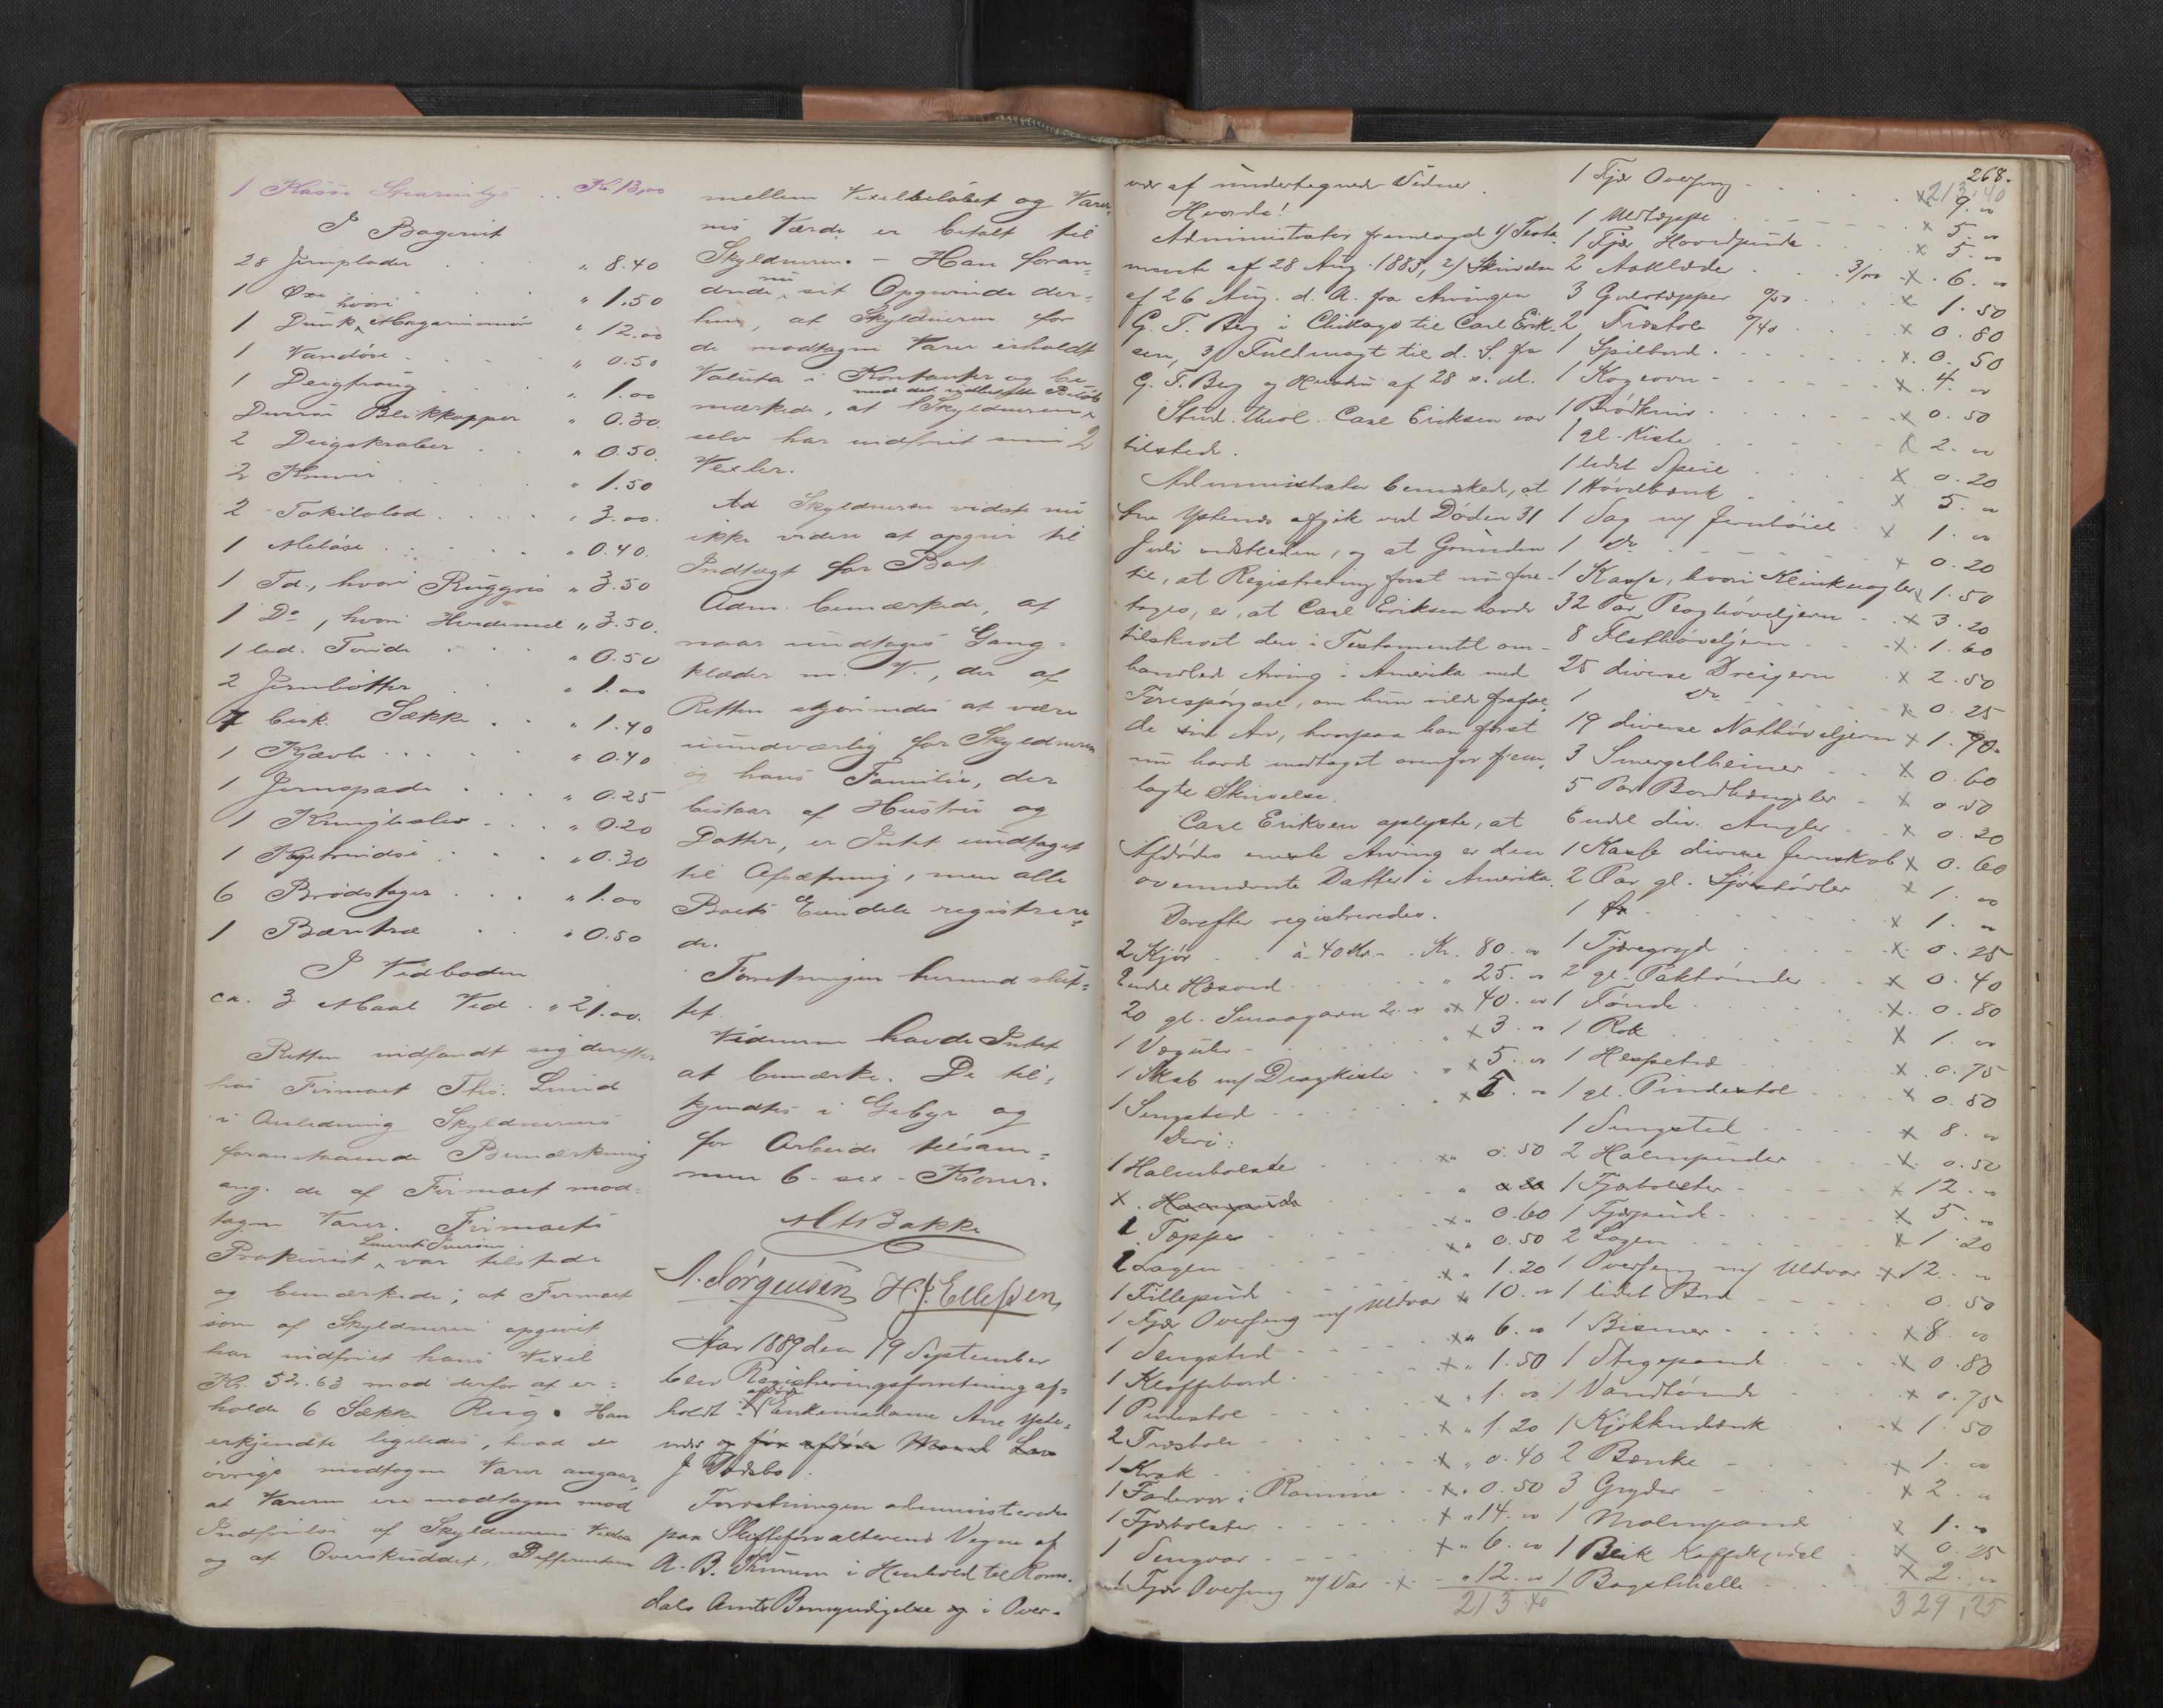 1 Kasse Stearinlys . . Kr. 13,00
I Bageriet
28 Jernplader . . . „ 8.40
1 Øxe . . . „ 1.50
1 Dunk hvori Magarinsmør „ 12.00
1 Vandøse . . . „ 0.50
1 Deigtroug . . . „ 1.00
Diverse Blikkopper „ 0.30.
2 Deigskraber . . „ 0.50.
2 Knive . . . „ 1.50
2 . . . „ 3.00.
1 Meløse . . . „ 0.40.
1 Td., hvori Ruggris „ 3.50
1 Do, hvori Hvedemel „ 3.50.
1 led. Tønde . . „ 0.50
2 Jernbøtter . . „ 1.00
7 besk. Sække . . „ 1.40
1 Kjævle . . . „ 0.40
1 Jernspade . . . „ 0.25
1 . . . „ 0.20
1 . . . „ 0.30
6 Brødstager . . . „ 1.00
1 Bæretræ . . „ 0.50
I Vedboden
ca. 3 Maal Ved . „ 21.00.
Retten indfandt sig derefter
hos Firmaet Ths. Lund
i Anledning Skyldnerens
foranstaaende Bemærkning
ang. de af Firmaet mod=
tagne Varer. Firmaets
Prokurist Laurits Iversen var tilstede
og bemærkede, at Firmaet
som af Skyldneren opgivet
har indfriet hans Vexel
Kr. 52.63 mod derfor at er=
holde 6 Sække Rug. Han
erkjendte ligeledes, hvad de
øvrige modtagne Varer angaar,
at Varerne ere modtagne mod
Indfrielse af Skyldnerens Vexler
og at Overskuddet, Differencen
mellem Vexelbeløbet og Varer=
nes Værdi er betalt til
Skyldneren. – Han foran=
drede nu sit Opgivende der=
hen, at Skyldneren for
de modtagne Varer erholdt
Valuta i Kontanter og be
mærkede, at Skyldneren med det udbetalte Beløb
selv har indfriet sine 2
Vexler.
Ad Skyldneren vidste nu
ikke videre at opgive til
Indtægt for Boet.
Adm. bemærkede, at
naar undtages Gang=
klæder m. V., der af
Retten skjønnedes at være
uundværlig for Skyldneren
og hans Familie, der
bestaar af Hustru og
Datter, er Intet undtaget
til Afsætning, men alle
Boets Eiendele registrere=
de.
Forretningen herved slut=
tet.
Vidnerne havde Intet
at bemærke. De til=
kjendtes i Gebyr og
for Arbeide tilsam=
men 6 - sex - Kroner.
M Bakke
A. Jørgensen H. J. Ellefsen
Aar 1889 den 19 September
blev Registreringsforretning af=
holdt i afdøde Enkemadame Ane Yste=
nes og før afdøde Mand Lars
J Dodsbo.
Forretningen administreredes
paa Skifteforvalterens Vegne af
A. B. Thunem i Henhold til Roms=
dals Amts Bemyndigelse og i Over=
268.
vær af undertegnede Vidner.
Hvorda!
Administrator fremlagde 1) Testa=
mente af 28 Aug. 1883, 2) Skrivelse
af 26 Aug. d. A. fra Arvingen
G. T. Berg i Chikago til Carl Erik=
sen, 3) Fuldmagt til d. S. fra
G. T. Berg og Hustru af 28 s. M.
Stud. theol. Carl Eriksen var
tilstede.
Administrator bemærkede, at
Ane Ystenes afgik ved Døden 31
Juli sidstleden, og at Grunden
til, at Registrering først nu fore=
tages, er, at Carl Eriksen havde
tilskrevet den i Testamentet om=
handlede Arving i Amerika med
Forespørgsel, om hun vilde frafal=
de sin Arv, hvorpaa han først
nu havde modtaget ovenfor frem=
lagte Skrivelse.
Carl Eriksen oplyste, at
Afdødes eneste Arving er den
ovennævnte Datter i Amerika.
Derefter registreredes.
2 Kjør . . à 40 Kr. . Kr. 80. 00
Endel Høavl . . . „ 25. 00
20 gl. Smaagarn 2. 00 „ x 40. 00
1 Væguhr . . . „ x 3. 00
1 Skab m/ Dragkiste . „ x 5. 00
1 Sengsted . . . „ x 5. 00
Deri:
1 Halmbolster . . . x „ 0.50
x . Haarpude . . . „ 0.20
1 Tæppe . . . x „ 0.60
2 Lagen . . . x „ 0.50
1 Fillepude . . . x „ 1.20
1 Fjær Overseng m/ Uldvar x 10. 00
1 Sengsted . . . x „ 6. 00
1 Klaffebord . . . x „ 1.50
1 Pindestol . . . x „ 1. 00
2 Træstole . . . x „ 1.20
1 Krak . . . x „ 0.40
1 Fadervor i Ramme . . x „ 0.50
1 Fjærbolster . . . x „ 14. 00
1 Sengvar . . . x „ 6. 00
1 Fjær Overseng m/ Var . x „ 12. 00
213.40
213,40
1 Fjær Overseng . . . x 9. 00
1 Uldtæppe . . . x 5. 00
1 Fjær Hovedpude . . x 5. 00
2 Aaklæder . . . 3/00 x 6. 00
3 Gulvtæpper 0/50 . . x 1. 50
2 Træstole 0/40 . . x 0. 80
1 Spilbord . . . x 0. 50
1 Kogeovn . . . x 4. 00
1 Brødkniv . . . x 0. 50
1 gl. Kiste . . . x 2. 00
1 lidet Speil . . . x 0. 20
1 Høvelbænk . . . x 5. 00
1 Sag m/ Jernbøile x 1. 00
1 do . . . x 0. 20
1 Kasse, hvori Klinknagler x 1. 50
32 Par Pløghøveljern . . x 3. 20
8 Flathøveljern . . x 1. 60
25 diverse Dreiejern x 2. 50
1 do x 0. 25
19 diverse Nothøveljern x 1. 90.
3 Smergelheiner . . x 0. 60
5 Par Bordhængsler . x 0 50
Endel div. Angler . . x 0. 20
1 Kasse diverse Jernskab x 0. 60
2 Par gl. Sjøstøvler x 1. 00
1 do . . . x 1. 00
1 Tjæregryd . . . x 0. 25
2 gl. Taktønder . . x 0. 40
1 Tønde . . . x 0. 80
1 Rok . . . x 1. 00
1 Hespetræ . . . x 0. 75
1 gl. Pindestol . . . x 0. 50
1 Sengsted . . . x 8. 00
2 Halmpuder . . . x 0. 50
1 Fjærbolster . . . x 12. 00
1 Fjærpude . . . x 5. 00
2 Lagen . . . x 1 20
1 Overseng m/ Uldvar x 12. 00
1 lidet Bord . . . 0. 50
1 Bismer . . . x 8. 00
1 Stegepande . . . x 0. 80
1 Vandtønde . . . x 0. 75
1 Kjøkkenbænk . . x 1. 50
2 Bænke . . . x 1. 00
3 Gryder . . . x 2. 00
1 Malmpande . . . x 1. 00
1 Blik Kaffekjedel . x 0. 25
1 Bagsthelle . . . x 2. 00
329,25